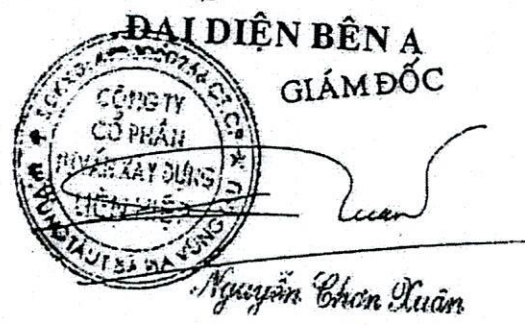 ĐẠI DIỆN BÊN A
GIÁM ĐỐC
CÔNG TY
CỔ PHẦN
XÂY DỰNG
VŨNG TÀU
Nguyễn Chơn Xuân